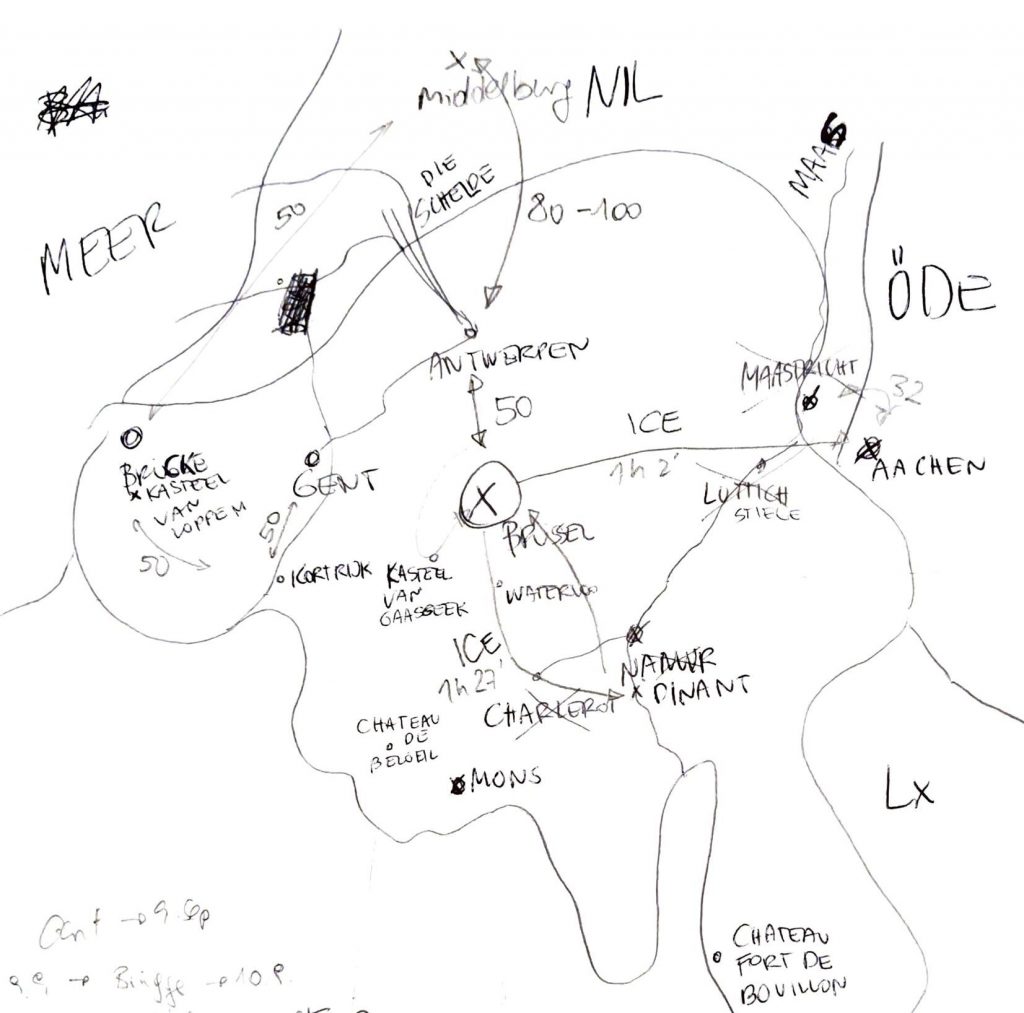 Middelburg
NIL
MAAS
DIE
SCHELDE
50
80-100
MEER
ÖDE
ANTWERPEN
MAASTRICHT
32
50
ICE
1h 2'
AACHEN
BRÜGKE
KASTEEL
VAN
LOPPEM
GENT
X
LÜTTICH
STIELE
BRÜSSEL
50
50
KORTRIJK
KASTEEL
VAN
GAASBEEK
WATERLOO
ICE
1h 27'
NAMUR
x DINANT
CHARLEROI
CHATEAU
DE
BELOEIL
MONS
Lx
CHATEAU
FORT DE
BOUILLON
9.9 → Brügge → 10.9.